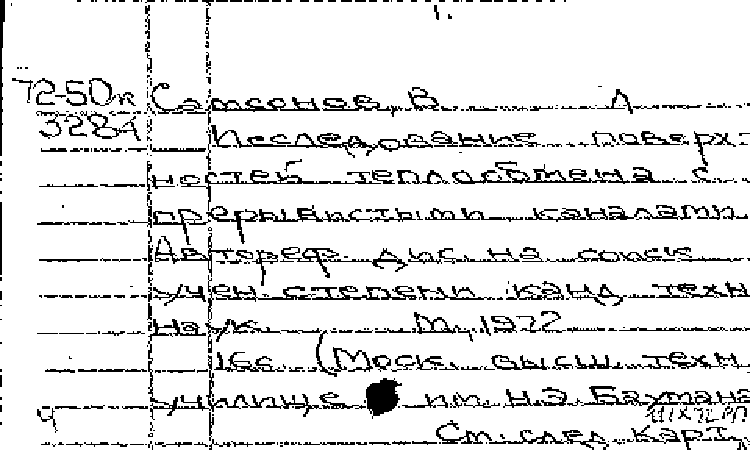 1.
72-50к Самсонов, В. А
3284 Исследование поверх-
ностей теплообмена с
прерывистыми каналами.
Автореф. дис. на соиск.
учен. степени канд. техн.
наук. М., 1972
16с. (Моск. высш. техн.
училище им. Н.Э. Баумана
Ч
См. след. карт.